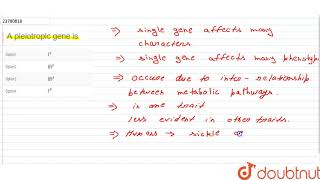 23700018
A pleiotropic gene is
⇒ single gene affects many
characters
⇒ single gene affects many phenotyp
⇒ occure due to inter-relationship
between metabolic pathways.
⇒ in one trait
less evident in other traits.
⇒ Humans → sickle
doubtnut